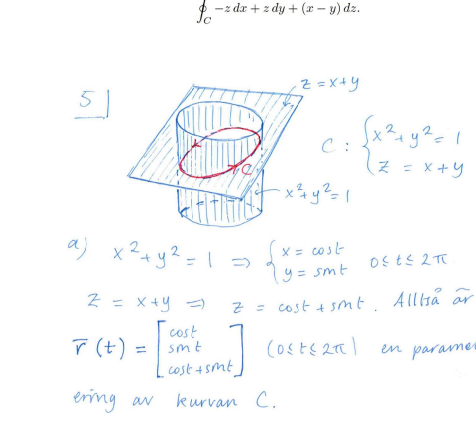 ∮_C −z dx + z dy + (x − y) dz.
5)
z = x+y
C : { x² + y² = 1
z = x + y
C
x² + y² = 1
a) x² + y² = 1 ⇒ { x = cost
y = sint 0 ≤ t ≤ 2π
z = x+y ⇒ z = cost + sint. Alltså är
r̄(t) = [ cost
sint
cost + sint ] (0 ≤ t ≤ 2π) en parame
ering av kurvan C.